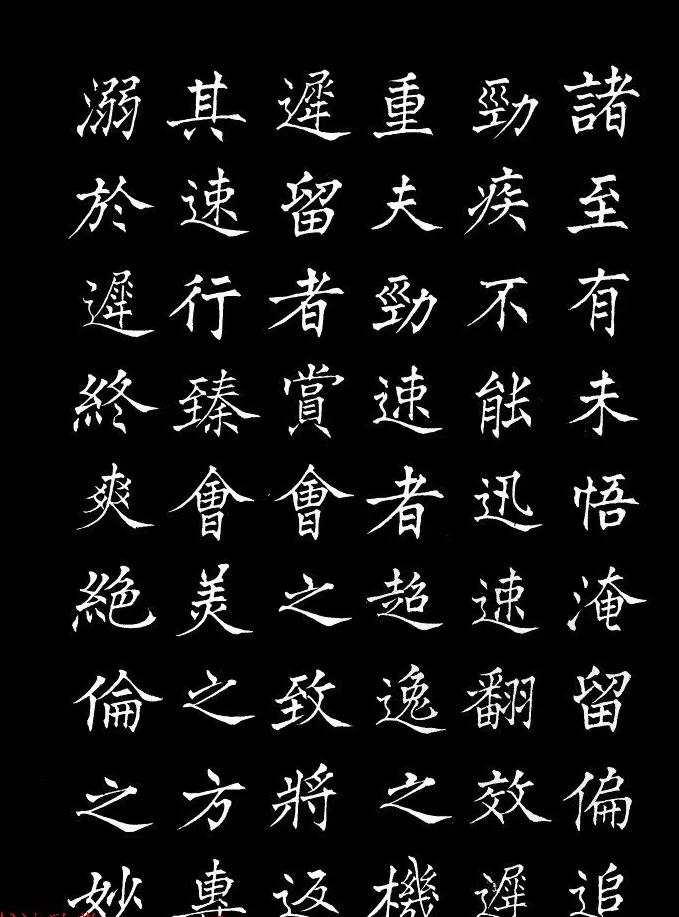 諸至有未悟淹留偏追
勁疾不能迅速翻效遲
重夫勁速者超逸之機
遲留者賞會之致將返
其速行臻會美之方專
溺於遲終爽絕倫之妙